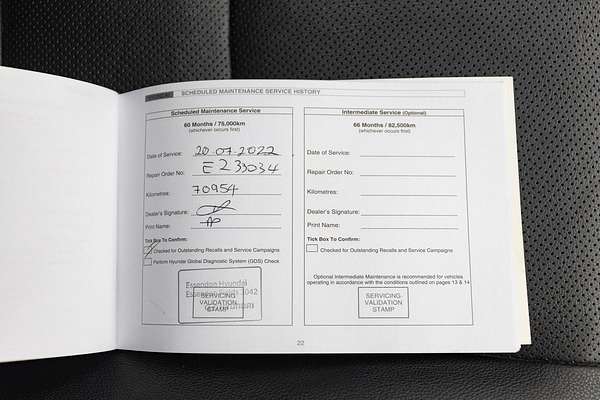 SCHEDULED MAINTENANCE SERVICE HISTORY
Scheduled Maintenance Service
60 Months / 75,000km
(whichever occurs first)
Date of Service: 20-07-2022
Repair Order No: E239034
Kilometres: 70954
Dealer's Signature:
Print Name: AP
Tick Box To Confirm:
Checked for Outstanding Recalls and Service Campaigns
Perform Hyundai Global Diagnostic System (GDS) Check
Essendon Hyundai
Essendon Fields 3042
SERVICING
VALIDATION
STAMP
Intermediate Service (Optional)
66 Months / 82,500km
(whichever occurs first)
Date of Service:
Repair Order No:
Kilometres:
Dealer's Signature:
Print Name:
Tick Box To Confirm:
Checked for Outstanding Recalls and Service Campaigns
Optional Intermediate Maintenance is recommended for vehicles
operating in accordance with the conditions outlined on pages 13 & 14
SERVICING
VALIDATION
STAMP
22